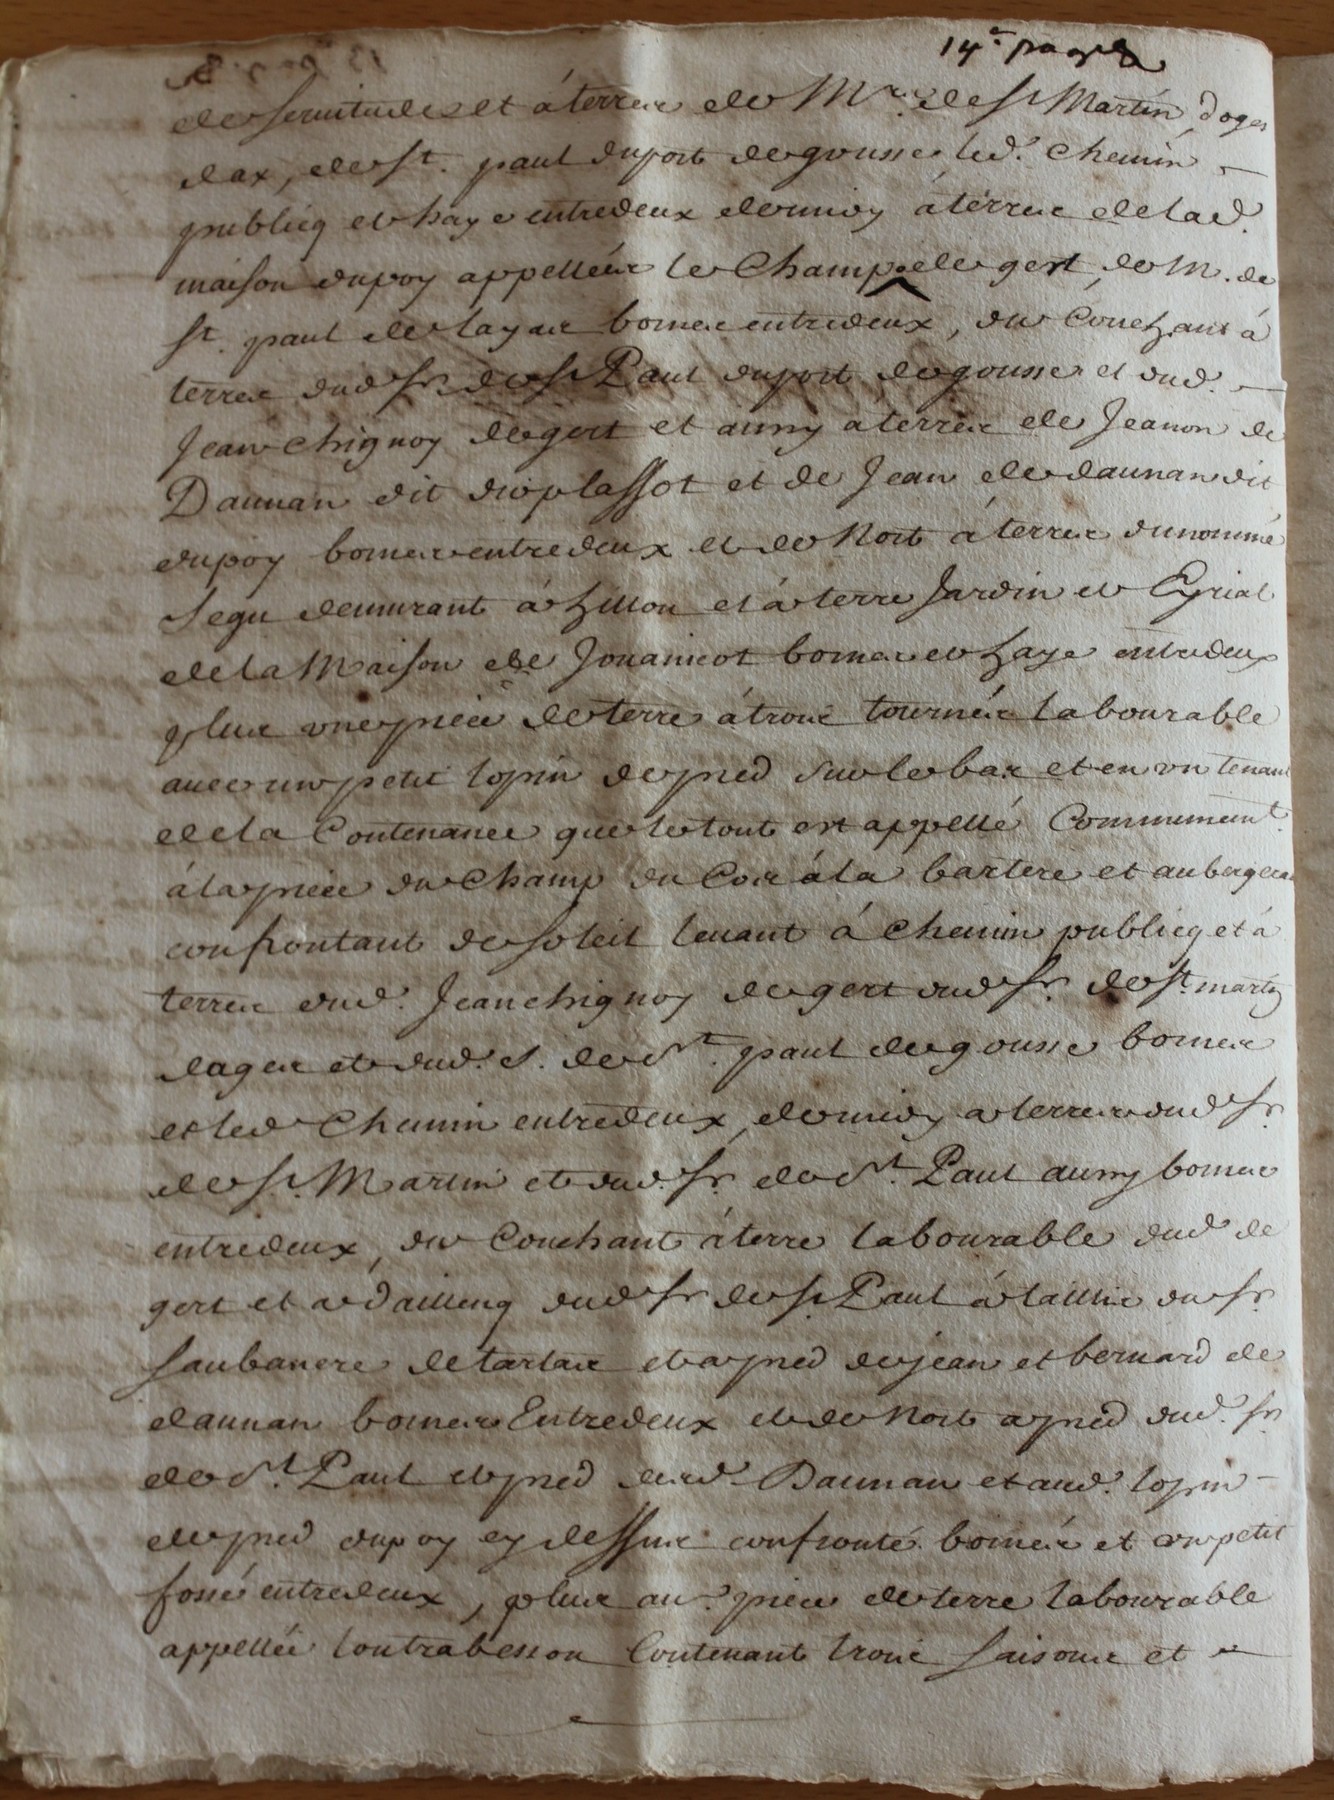 14e. page
de servitude et à terres de Mr. de st Martin d'ages
dax, de st. paul duport de gousse led. chemin
publicq et haye entredeux de midy à terres de lad.
maison dupoy appellées le champ de gert, de M. de
st. paul de layar bornes entredeux, du couchant à
terres dud. sr. de st Paul duport de gousse et dud.
Jean chignoy de gert et aussy a terres de Jeanon de
Daunan dit du plassot et de Jean de daunan dit
dupoy bornes entredeux et de Nort à terres du nommé
Segu demurant à hillon et à terre Jardin et Eyrial
de la Maison de Jouanicot bornes et haye entredeux
plus une piece de terre à trois tournées labourable
avec un petit lopin de pred sur le bas et en un tenant
de la Contenance que le tout est appellé Communement
à la piece du champ du Cos à la bartere et au bergeras
confrontant de soleil levant à chemin publicq et à
terres dud. Jean chignoy de gert dud. sr. de st. martin
dages et dud. s. de st. paul de gousse bornes
et led. chemin entredeux, de midy a terres dud. sr.
de st. Martin et dud. sr. de st. Paul aussy bornes
entredeux, du Couchant à terre labourable dud. de
gert et a dailleurs dud. sr de st Paul à taillis du sr.
Saubanere de tartas et a pred de jean et bernard de
daunan bornes Entredeux et de Nort a pred dud. sr.
de st. Paul et pred desd. Daunan et aud. lopin
de pred dupoy cy dessus confronté bornes et un petit
fossé entredeux, plus au. piece de terre labourable
appellée loutrabesson Contenant trois saisons et